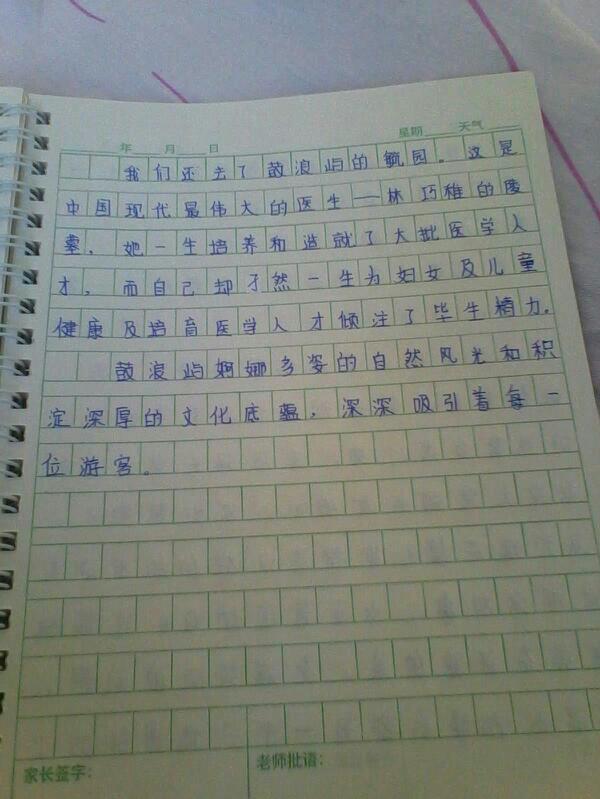 年 月 日 星期 天气
我们还去了鼓浪屿的毓园。这是
中国现代最伟大的医生——林巧稚的陵
墓，她一生培养和造就了大批医学人
才，而自己却孑然一生为妇女及儿童
健康及培育医学人才倾注了毕生精力。
鼓浪屿婀娜多姿的自然风光和积
淀深厚的文化底蕴，深深吸引着每一
位游客。
家长签字： 老师批语：